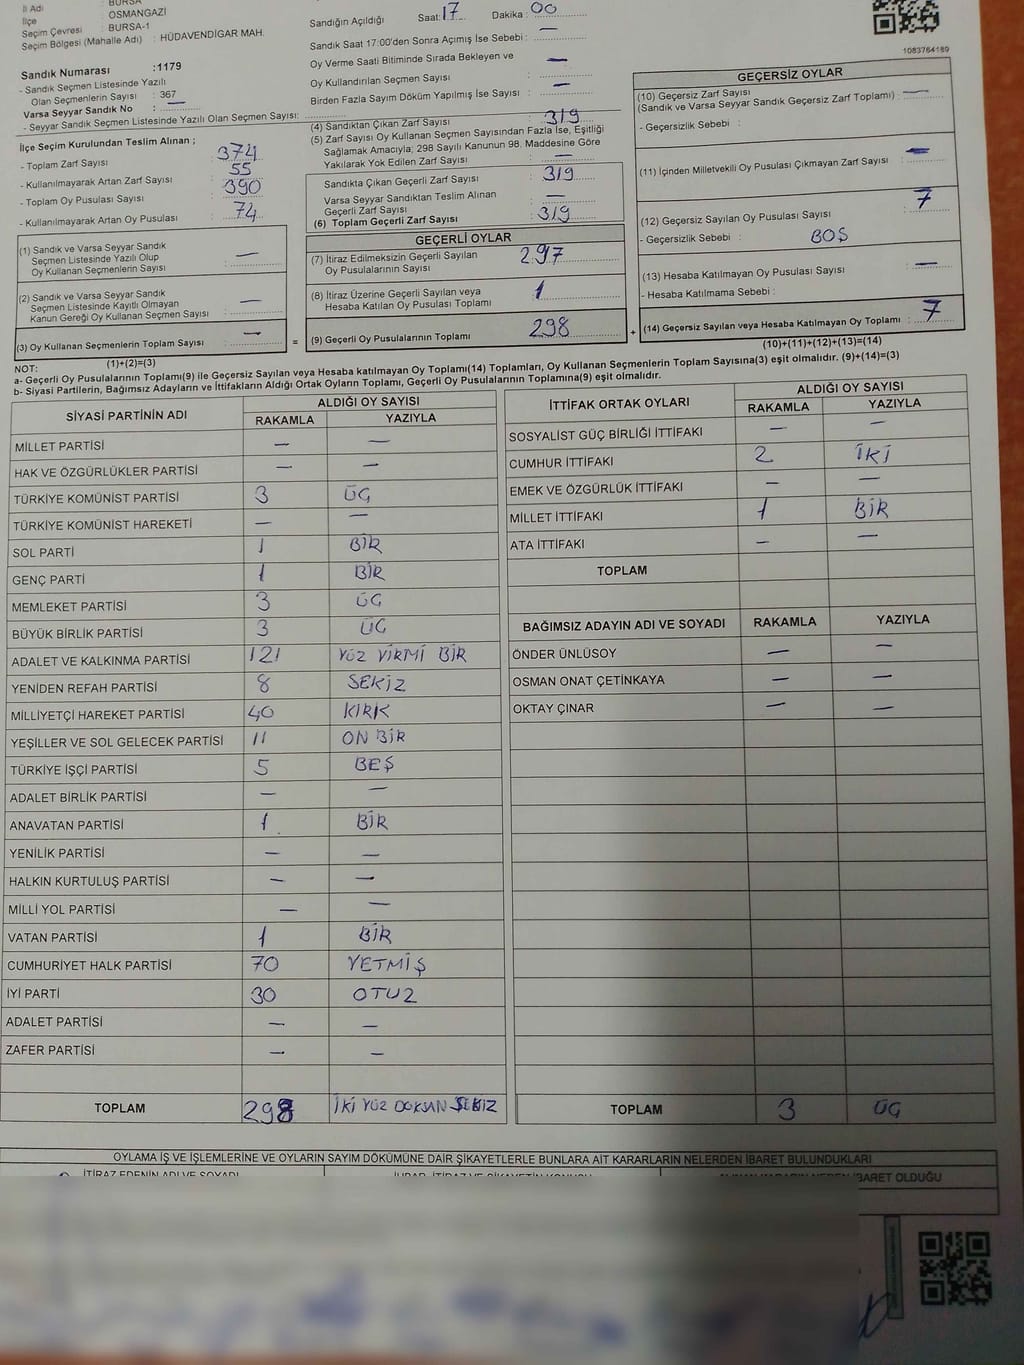 İl Adı : BURSA
İlçe : OSMANGAZİ
Seçim Çevresi : BURSA-1
Seçim Bölgesi (Mahalle Adı) : HÜDAVENDİGAR MAH.
Sandık Numarası :1179
- Sandık Seçmen Listesinde Yazılı
Olan Seçmenlerin Sayısı : 367
Varsa Seyyar Sandık No : —
- Seyyar Sandık Seçmen Listesinde Yazılı Olan Seçmen Sayısı:
İlçe Seçim Kurulundan Teslim Alınan ;
- Toplam Zarf Sayısı : 374
- Kullanılmayarak Artan Zarf Sayısı : 55
- Toplam Oy Pusulası Sayısı : 390
- Kullanılmayarak Artan Oy Pusulası : 74
(1) Sandık ve Varsa Seyyar Sandık
Seçmen Listesinde Yazılı Olup
Oy Kullanan Seçmenlerin Sayısı : —
(2) Sandık ve Varsa Seyyar Sandık
Seçmen Listesinde Kayıtlı Olmayan
Kanun Gereği Oy Kullanan Seçmen Sayısı : —
(3) Oy Kullanan Seçmenlerin Toplam Sayısı : —
(1)+(2)=(3)
Sandığın Açıldığı Saat: 17 Dakika : 00
Sandık Saat 17:00'den Sonra Açımış İse Sebebi : —
Oy Verme Saati Bitiminde Sırada Bekleyen ve
Oy Kullandırılan Seçmen Sayısı : —
Birden Fazla Sayım Döküm Yapılmış İse Sayısı : —
(4) Sandıktan Çıkan Zarf Sayısı : 319
(5) Zarf Sayısı Oy Kullanan Seçmen Sayısından Fazla İse, Eşitliği
Sağlamak Amacıyla; 298 Sayılı Kanunun 98. Maddesine Göre
Yakılarak Yok Edilen Zarf Sayısı : —
Sandıkta Çıkan Geçerli Zarf Sayısı : 319
Varsa Seyyar Sandıktan Teslim Alınan
Geçerli Zarf Sayısı : —
(6) Toplam Geçerli Zarf Sayısı : 319
GEÇERLİ OYLAR
(7) İtiraz Edilmeksizin Geçerli Sayılan
Oy Pusulalarının Sayısı : 297
(8) İtiraz Üzerine Geçerli Sayılan veya
Hesaba Katılan Oy Pusulası Toplamı : 1
= (9) Geçerli Oy Pusulalarının Toplamı : 298
1083764189
GEÇERSİZ OYLAR
(10) Geçersiz Zarf Sayısı
(Sandık ve Varsa Seyyar Sandık Geçersiz Zarf Toplamı) : —
- Geçersizlik Sebebi :
(11) İçinden Milletvekili Oy Pusulası Çıkmayan Zarf Sayısı : —
(12) Geçersiz Sayılan Oy Pusulası Sayısı : 7
- Geçersizlik Sebebi : BOŞ
(13) Hesaba Katılmayan Oy Pusulası Sayısı : —
- Hesaba Katılmama Sebebi :
+ (14) Geçersiz Sayılan veya Hesaba Katılmayan Oy Toplamı : 7
(10)+(11)+(12)+(13)=(14)
NOT:
a- Geçerli Oy Pusulalarının Toplamı(9) ile Geçersiz Sayılan veya Hesaba katılmayan Oy Toplamı(14) Toplamları, Oy Kullanan Seçmenlerin Toplam Sayısına(3) eşit olmalıdır. (9)+(14)=(3)
b- Siyasi Partilerin, Bağımsız Adayların ve İttifakların Aldığı Ortak Oyların Toplamı, Geçerli Oy Pusulalarının Toplamına(9) eşit olmalıdır.
SİYASİ PARTİNİN ADI ALDIĞI OY SAYISI
RAKAMLA YAZIYLA
MİLLET PARTİSİ — —
HAK VE ÖZGÜRLÜKLER PARTİSİ — —
TÜRKİYE KOMÜNİST PARTİSİ 3 ÜÇ
TÜRKİYE KOMÜNİST HAREKETİ — —
SOL PARTİ 1 BİR
GENÇ PARTİ 1 BİR
MEMLEKET PARTİSİ 3 ÜÇ
BÜYÜK BİRLİK PARTİSİ 3 ÜÇ
ADALET VE KALKINMA PARTİSİ 121 YÜZ YİRMİ BİR
YENİDEN REFAH PARTİSİ 8 SEKİZ
MİLLİYETÇİ HAREKET PARTİSİ 40 KIRK
YEŞİLLER VE SOL GELECEK PARTİSİ 11 ON BİR
TÜRKİYE İŞÇİ PARTİSİ 5 BEŞ
ADALET BİRLİK PARTİSİ — —
ANAVATAN PARTİSİ 1 BİR
YENİLİK PARTİSİ — —
HALKIN KURTULUŞ PARTİSİ — —
MİLLİ YOL PARTİSİ — —
VATAN PARTİSİ 1 BİR
CUMHURİYET HALK PARTİSİ 70 YETMİŞ
İYİ PARTİ 30 OTUZ
ADALET PARTİSİ — —
ZAFER PARTİSİ — —
TOPLAM 298 İKİ YÜZ DOKSAN SEKİZ
İTTİFAK ORTAK OYLARI ALDIĞI OY SAYISI
RAKAMLA YAZIYLA
SOSYALİST GÜÇ BİRLİĞİ İTTİFAKI — —
CUMHUR İTTİFAKI 2 İKİ
EMEK VE ÖZGÜRLÜK İTTİFAKI — —
MİLLET İTTİFAKI 1 BİR
ATA İTTİFAKI — —
TOPLAM
BAĞIMSIZ ADAYIN ADI VE SOYADI RAKAMLA YAZIYLA
ÖNDER ÜNLÜSOY — —
OSMAN ONAT ÇETİNKAYA — —
OKTAY ÇINAR — —
TOPLAM 3 ÜÇ
OYLAMA İŞ VE İŞLEMLERİNE VE OYLARIN SAYIM DÖKÜMÜNE DAİR ŞİKAYETLERLE BUNLARA AİT KARARLARIN NELERDEN İBARET BULUNDUKLARI
İTİRAZ EDENİN ADI VE SOYADI
İBARET OLDUĞU